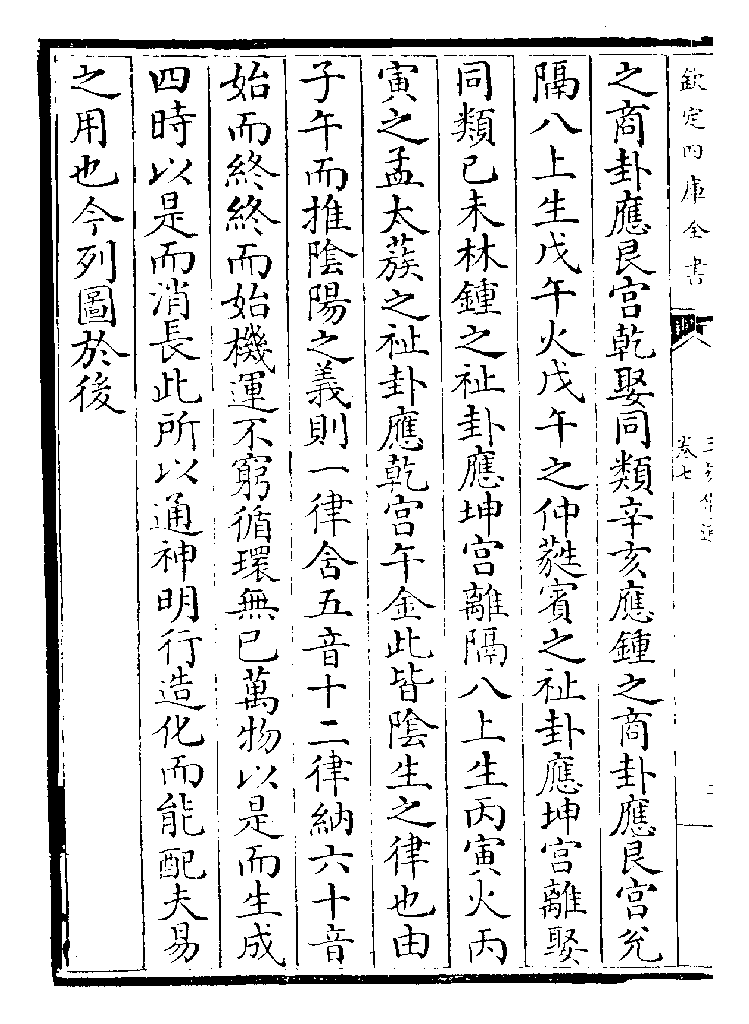 欽定四庫全書
卷七
之商卦應艮宫乾娶同類辛亥應鍾之商卦應艮宫兊
隔八上生戊午火戊午之仲蕤賓之祉卦應坤宫離娶
同類已未林鍾之祉卦應坤宫離隔八上生丙寅火丙
寅之孟太蔟之祉卦應乾宫午金此皆陰生之律也由
子午而推陰陽之義則一律舍五音十二律納六十音
始而終終而始機運不窮循環無已萬物以是而生成
四時以是而消長此所以通神明行造化而能配夫易
之用也今列圖於後